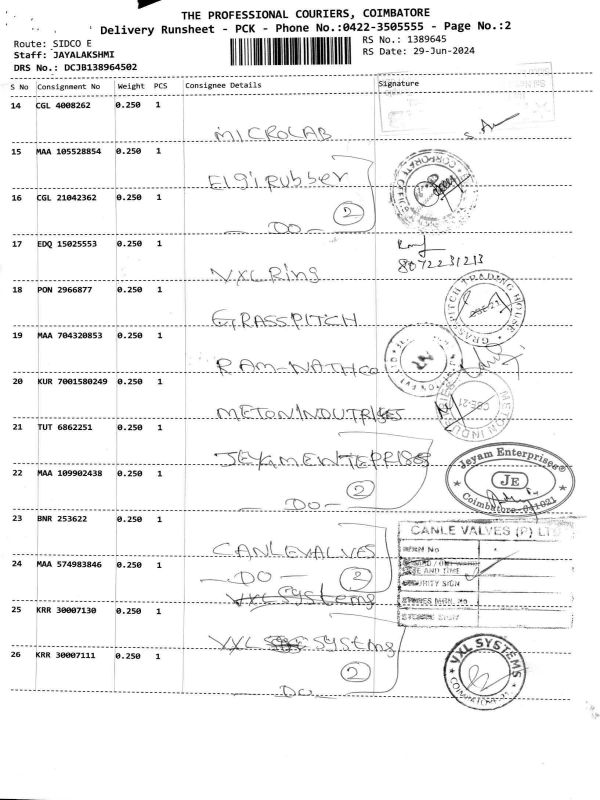 THE PROFESSIONAL COURIERS, COIMBATORE
Delivery Runsheet - PCK - Phone No.:0422-3505555 - Page No.:2
Route: SIDCO E
RS No.: 1389645
Staff: JAYALAKSHMI
RS Date: 29-Jun-2024
DRS No.: DCJB138964502
S No Consignment No Weight PCS Consignee Details Signature
14 CGL 4008262 0.250 1
MICROLAB
15 MAA 105528854 0.250 1
Elgi Rubber
CORPORATE OFFICE
16 CGL 21042362 0.250 1
Do 2
17 EDQ 15025553 0.250 1
8072231213
VXL Ring
18 PON 2966877 0.250 1
GRASSPITCH
GRASSPITCH TRADING HOUSE
19 MAA 704320853 0.250 1
RAM-NATHCO
20 KUR 7001580249 0.250 1
METONINDUTRISES
METON INDUSTRIES
21 TUT 6862251 0.250 1
JEYAMENTERPRISES
Jeyam Enterprises®
JE
Coimbatore-641021
22 MAA 109902438 0.250 1
Do 2
23 BNR 253622 0.250 1
CANLEVALVES
CANLE VALVES (P) LTD
24 MAA 574983846 0.250 1
DO 2
VXL Systems
TIME AND TIME
SECURITY SIGN
25 KRR 30007130 0.250 1
VXL Systms
26 KRR 30007111 0.250 1
2
Do
VXL SYSTEMS